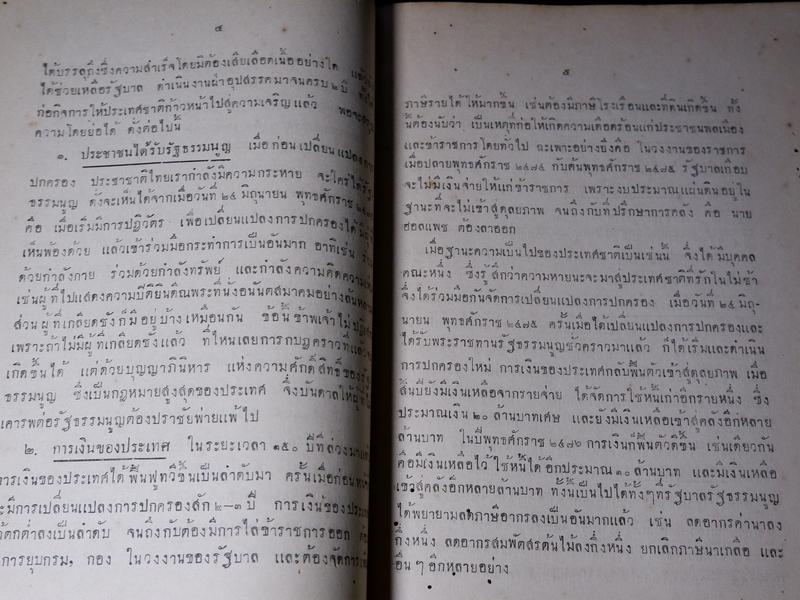 ๔
ได้บรรลุถึงซึ่งความสำเร็จโดยมิต้องเสียเลือดเนื้ออย่างใด
ได้ช่วยเหลือรัฐบาล ดำเนินงานผ่าอุปสรรคมาจนครบ ๒ ปี
ก่อกิจการให้ประเทศชาติก้าวหน้าไปสู่ความเจริญแล้ว
ความโดยย่อได้ ดังต่อไปนี้
๑. ประชาชนได้รับรัฐธรรมนูญ เมื่อก่อนเปลี่ยนแปลงการ
ปกครอง ประชาชาติไทยเรากำลังมีความกระหาย จะใคร่ได้
ธรรมนูญ ดังจะเห็นได้จากเมื่อวันที่ ๒๔ มิถุนายน พุทธศักราช
คือ เมื่อเริ่มมีการปฏิวัตร เพื่อเปลี่ยนแปลงการปกครองได้
เห็นพ้องด้วย แล้วเข้าร่วมมือกระทำการเป็นอันมาก อาทิเช่น
ด้วยกำลังกาย ร่วมด้วยกำลังทรัพย์ และกำลังความคิดความ
เช่นผู้ที่ไปแสดงความปีติยินดีณพระที่นั่งอนันตสมาคมอย่างล้นหลาม
ส่วนผู้ที่เกลียดชังก็มีอยู่บ้างเหมือนกัน ข้อนี้ข้าพเจ้าไม่
เพราะถ้าไม่มีผู้ที่เกลียดชังแล้ว ที่ไหนเลยการกบฏคราวที่แล้ว
เกิดขึ้นได้ แต่ด้วยบุญญาภินิหาร แห่งความศักดิ์สิทธิ์ของ
ธรรมนูญ ซึ่งเป็นกฎหมายสูงสุดของประเทศ จึงบันดาลให้ผู้
เคารพต่อรัฐธรรมนูญต้องปราชัยพ่ายแพ้ไป
๒. การเงินของประเทศ ในระยะเวลา ๑๕๐ ปีที่ล่วงมา
การเงินของประเทศได้ฟื้นฟูทวีขึ้นเป็นลำดับมา ครั้นเมื่อก่อน
จะมีการเปลี่ยนแปลงการปกครองสัก ๒–๓ ปี การเงินของประเทศ
ได้ตกต่ำลงเป็นลำดับ จนถึงกับต้องมีการไล่ข้าราชการออก
การยุบกรม, กอง ในวงงานของรัฐบาล และต้องจัดการ
๕
ภาษีรายได้ให้มากขึ้น เช่นต้องมีภาษีโรงเรือนและที่ดินเกิดขึ้น ทั้ง
นี้ต้องนับว่า เป็นเหตุที่ก่อให้เกิดความเดือดร้อนแก่ประชาชนพลเมือง
และข้าราชการโดยทั่วไป ฉะเพาะอย่างยิ่งคือ ในวงงานของราชการ
เมื่อปลายพุทธศักราช ๒๔๗๔ กับต้นพุทธศักราช ๒๔๗๕ รัฐบาลเกือบ
จะไม่มีเงินจ่ายให้แก่ข้าราชการ เพราะงบประมาณแผ่นดินอยู่ใน
ฐานะที่จะไม่เข้าสู่ดุลยภาพ จนถึงกับที่ปรึกษาการคลัง คือ นาย
ฮอลแพช ต้องลาออก
เมื่อฐานะความเป็นไปของประเทศชาติเป็นเช่นนี้ จึงได้มีบุคคล
คณะหนึ่ง ซึ่งรู้สึกว่าความหายนะจะมาสู่ประเทศชาติที่รักในไม่ช้า
จึงได้ร่วมมือกันจัดการเปลี่ยนแปลงการปกครอง เมื่อวันที่ ๒๔ มิถุ-
นายน พุทธศักราช ๒๔๗๕ ครั้นเมื่อได้เปลี่ยนแปลงการปกครองและ
ได้รับพระราชทานรัฐธรรมนูญชั่วคราวมาแล้ว ก็ได้เริ่มและดำเนิน
การปกครองใหม่ การเงินของประเทศกลับฟื้นตัวเข้าสู่ดุลยภาพ เมื่อ
สิ้นปียังมีเงินเหลือจากรายจ่าย ได้จัดการใช้หนี้เก่าอีกรายหนึ่ง ซึ่ง
ประมาณเงิน ๒๐ ล้านบาทเศษ และยังมีเงินเหลือเข้าสู่คลังอีกหลาย
ล้านบาท ในปีพุทธศักราช ๒๔๗๖ การเงินก็ฟื้นตัวดีขึ้น เช่นเดียวกัน
คือมีเงินเหลือไว้ใช้หนี้ได้อีกประมาณ ๑๐ ล้านบาท และมีเงินเหลือ
เข้าสู่คลังอีกหลายล้านบาท ทั้งนี้เป็นไปได้ทั้งๆที่รัฐบาลรัฐธรรมนูญ
ได้พยายามลดภาษีอากรลงเป็นอันมากแล้ว เช่น ลดอากรค่านาลง
กึ่งหนึ่ง ลดอากรสมพัตสรต้นไม้ลงกึ่งหนึ่ง ยกเลิกภาษีนาเกลือ และ
อื่นๆอีกหลายอย่าง